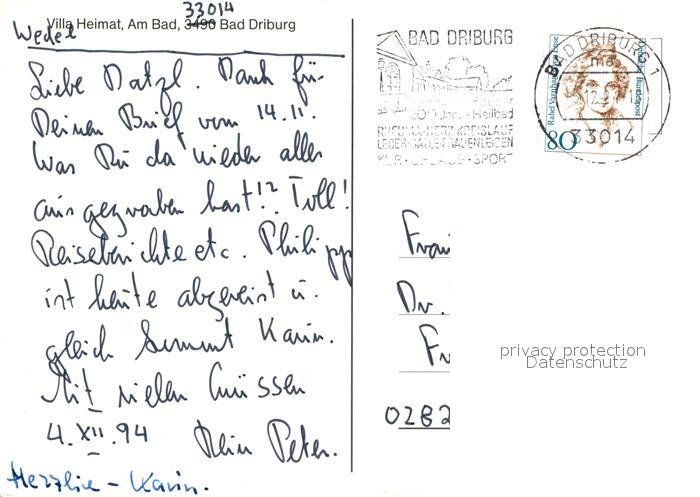 33014
Villa Heimat, Am Bad, 3490 Bad Driburg
Wedel
Liebe Natzl. Dank für
Deinen Brief vom 14.11.
Was Du da wieder alles
ausgegraben hast!? Toll!
Reiseberichte etc. Philipp
ist heute abgereist u.
gleich kommt Karin.
Mit vielen Grüssen
4.XII.94 Dein Peter.
Herzlich - Karin.
BAD DRIBURG
200 Jahre Heilbad
RHEUMA-HERZ-KREISLAUF
LEBER-GALLE-FRAUENLEIDEN
KUR-URLAUB-SPORT
BAD DRIBURG 1
33014
Rahel Varnhagen von Ense
Deutsche Bundespost
80
Frau
Dr.
Fr
0282
privacy protection
Datenschutz